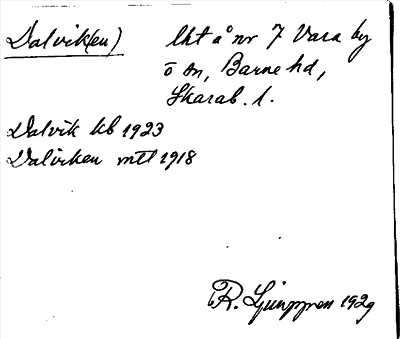 Dalvik(en) lht å nr 7 Vara by
ö sn, Barne hd,
Skarab. l.
Dalvik kb 1923
Dalviken mtl 1918
R. Ljunggren 1929